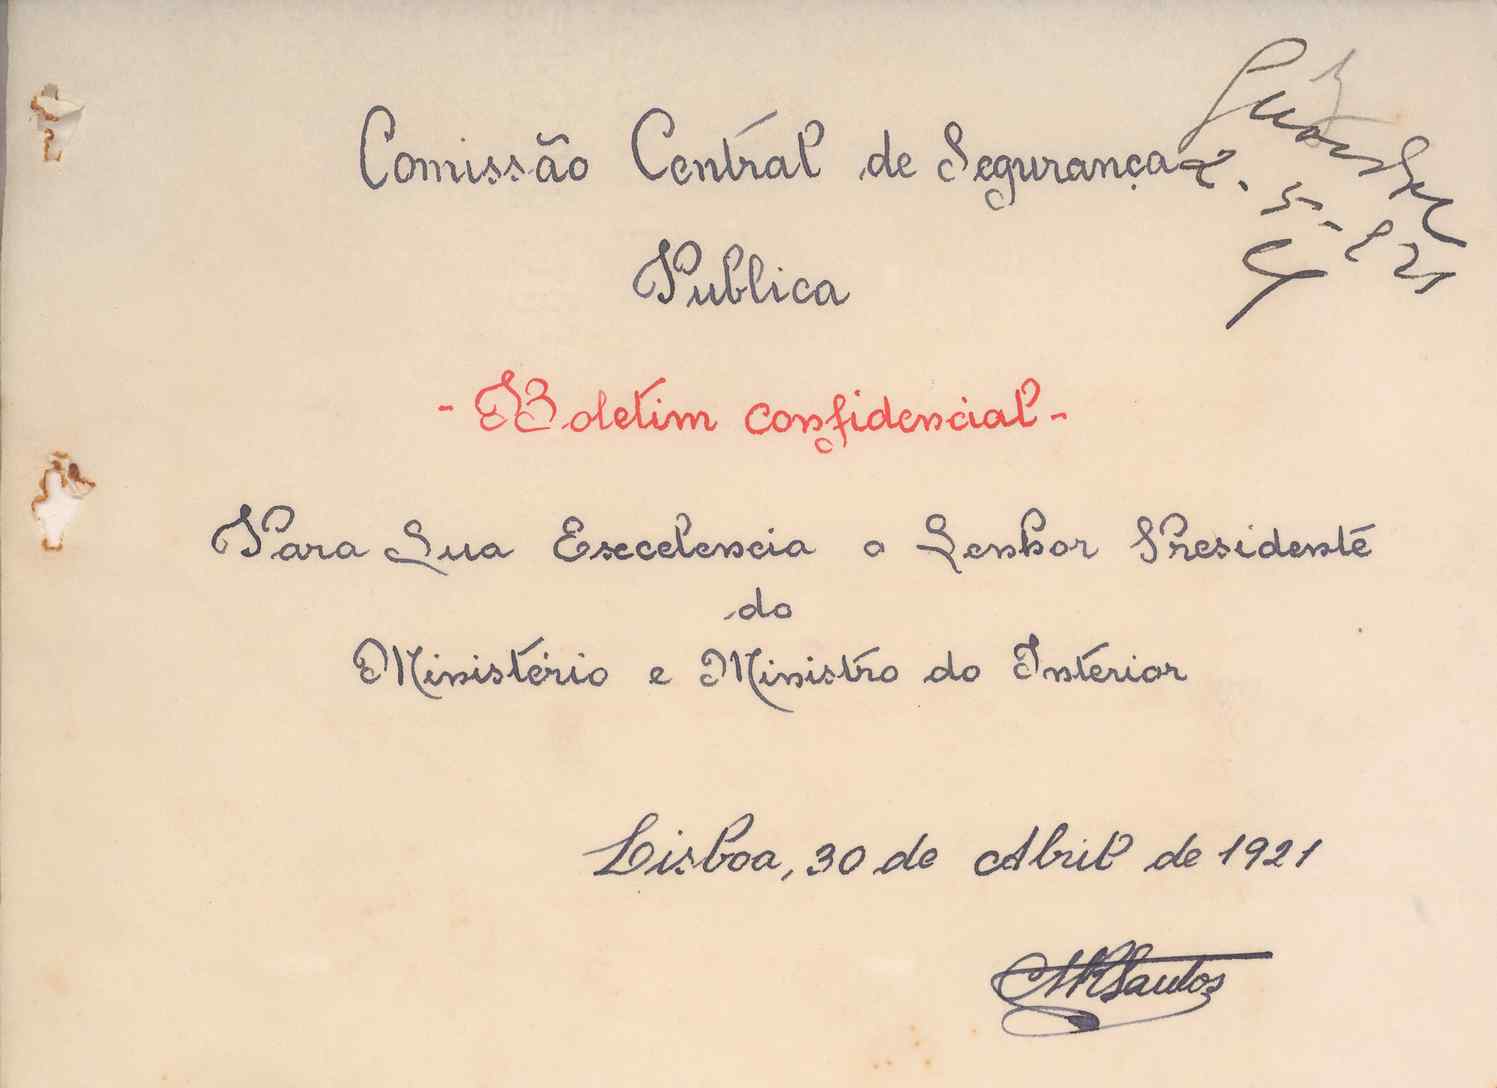 Comissão Central de Segurança
Publica
- Boletim confidencial -
Para Sua Excelencia o Senhor Presidente
do
Ministério e Ministro do Interior
Lisboa, 30 de Abril de 1921
MRSantos
2-5-921